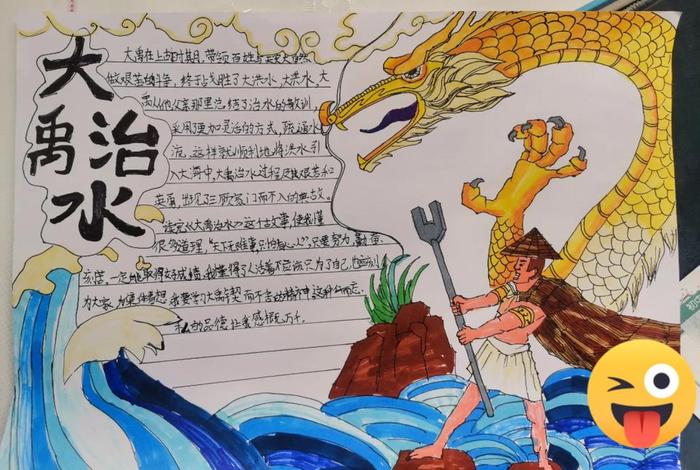 大禹治水
大禹在上古时期，带领百姓与
做艰苦的斗争，终于战胜了大洪水，大洪水，大
禹从他父亲那里总结了治水的教训，
采用了更加灵活的方式，疏通水
流，这样就顺利地将洪水引
入大海中，大禹治水过程尽艰苦和
出现了三顾家门而不入的典故。
读完《大禹治水》这个故事，使我懂
很多道理，"天下无难事只怕有心人"，只要努力、勤奋、
刻苦，一定能取得好成绩，我懂得了人活着不应该只为了自己，也应该
为大家，为集体着想，我要学习大禹锲而不舍的精神，这种
私的品德让我感慨万千。